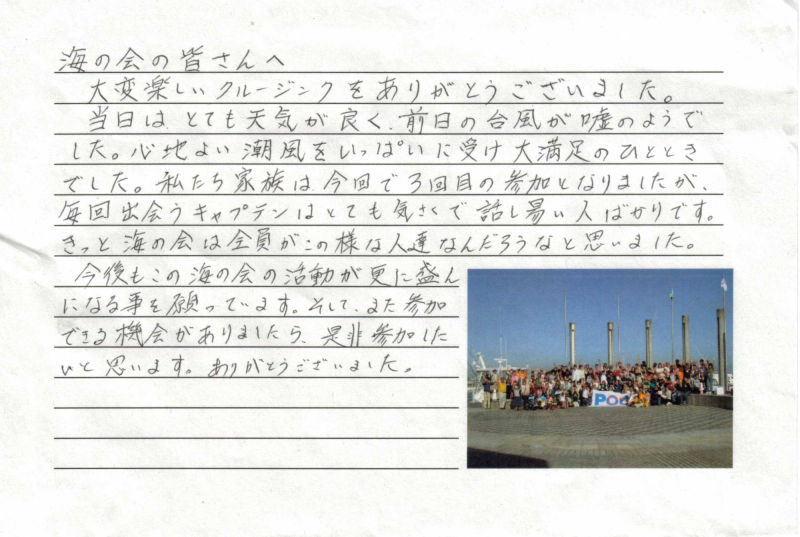 海の会の皆さんへ
大変楽しいクルージングをありがとうございました。
当日は、とても天気が良く、前日の台風が嘘のようで
した。心地よい潮風をいっぱいに受け大満足のひととき
でした。私たち家族は、今回で3回目の参加となりましたが、
毎回出会うキャプテンはとても気さくで話し易い人ばかりです。
きっと海の会は全員がこの様な人達なんだろうなと思いました。
今後もこの海の会の活動が更に盛ん
になる事を願っています。そして、また参加
できる機会がありましたら、是非参加した
いと思います。ありがとうございました。